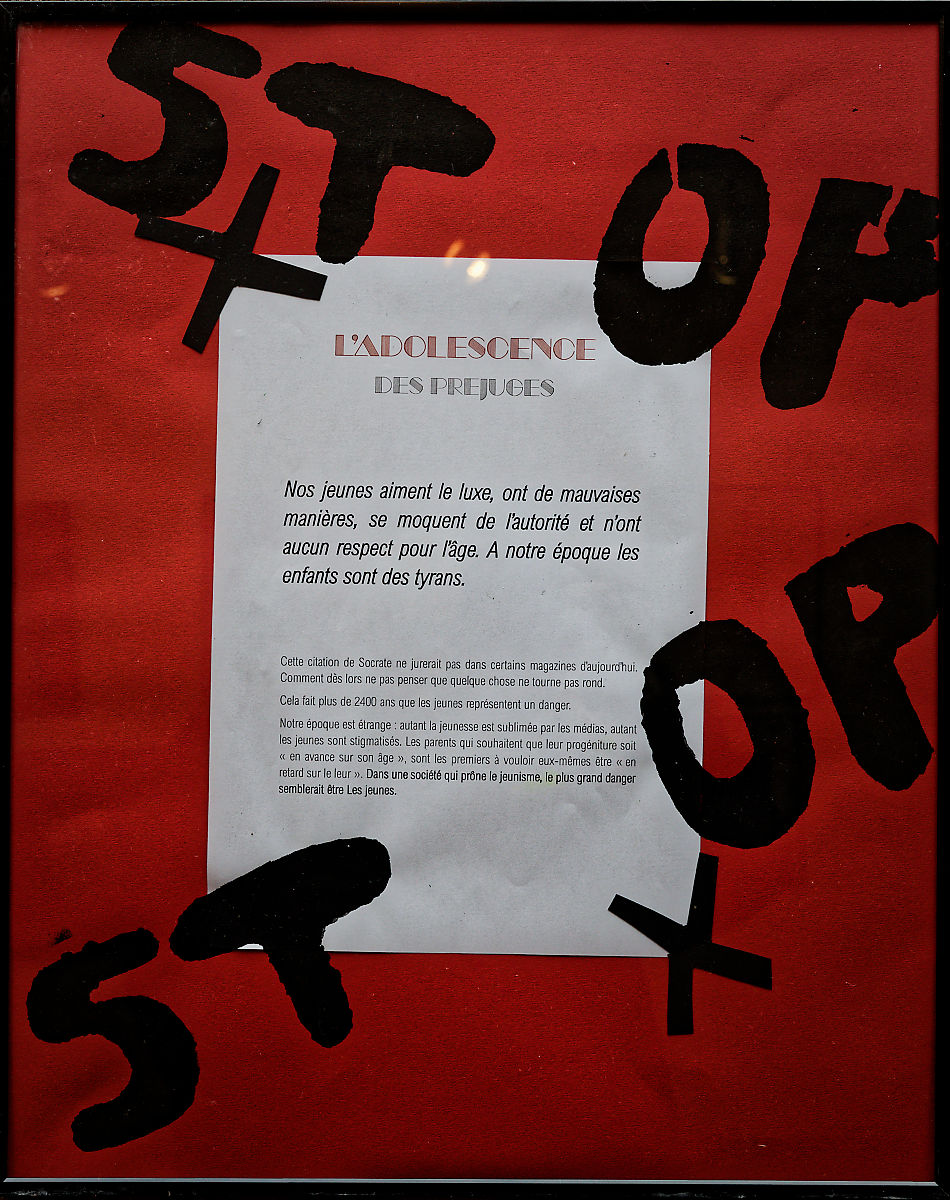 STOP
L'ADOLESCENCE
DES PREJUGES
Nos jeunes aiment le luxe, ont de mauvaises
manières, se moquent de l'autorité et n'ont
aucun respect pour l'âge. A notre époque les
enfants sont des tyrans.
Cette citation de Socrate ne jurerait pas dans certains magazines d'aujourd'hui.
Comment dès lors ne pas penser que quelque chose ne tourne pas rond.
Cela fait plus de 2400 ans que les jeunes représentent un danger.
Notre époque est étrange : autant la jeunesse est sublimée par les médias, autant
les jeunes sont stigmatisés. Les parents qui souhaitent que leur progéniture soit
« en avance sur son âge », sont les premiers à vouloir eux-mêmes être « en
retard sur le leur ». Dans une société qui prône le jeunisme, le plus grand danger
semblerait être Les jeunes.
STOP